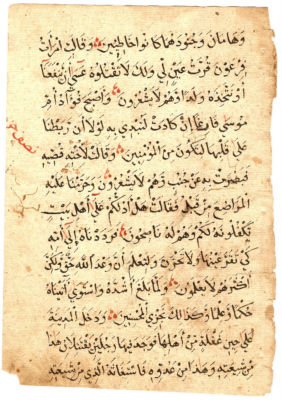 وَهَامَانَ وَجُنُودَهُمَا كَانُوا خَاطِئِينَ وَقَالَتِ امْرَأَتُ
فِرْعَوْنَ قُرَّتُ عَيْنٍ لِي وَلَكَ لَا تَقْتُلُوهُ عَسَى أَنْ يَنْفَعَنَا
أَوْ نَتَّخِذَهُ وَلَدًا وَهُمْ لَا يَشْعُرُونَ وَأَصْبَحَ فُؤَادُ أُمِّ
مُوسَى فَارِغًا إِنْ كَادَتْ لَتُبْدِي بِهِ لَوْلَا أَنْ رَبَطْنَا
عَلَى قَلْبِهَا لِتَكُونَ مِنَ الْمُؤْمِنِينَ وَقَالَتْ لِأُخْتِهِ قُصِّيهِ
فَبَصُرَتْ بِهِ عَنْ جُنُبٍ وَهُمْ لَا يَشْعُرُونَ وَحَرَّمْنَا عَلَيْهِ
الْمَرَاضِعَ مِنْ قَبْلُ فَقَالَتْ هَلْ أَدُلُّكُمْ عَلَى أَهْلِ بَيْتٍ
يَكْفُلُونَهُ لَكُمْ وَهُمْ لَهُ نَاصِحُونَ فَرَدَدْنَاهُ إِلَى أُمِّهِ
كَيْ تَقَرَّ عَيْنُهَا وَلَا تَحْزَنَ وَلِتَعْلَمَ أَنَّ وَعْدَ اللَّهِ حَقٌّ وَلَكِنَّ
أَكْثَرَهُمْ لَا يَعْلَمُونَ وَلَمَّا بَلَغَ أَشُدَّهُ وَاسْتَوَى آتَيْنَاهُ
حُكْمًا وَعِلْمًا وَكَذَلِكَ نَجْزِي الْمُحْسِنِينَ وَدَخَلَ الْمَدِينَةَ
عَلَى حِينِ غَفْلَةٍ مِنْ أَهْلِهَا فَوَجَدَ فِيهَا رَجُلَيْنِ يَقْتَتِلَانِ هَذَا
مِنْ شِيعَتِهِ وَهَذَا مِنْ عَدُوِّهِ فَاسْتَغَاثَهُ الَّذِي مِنْ شِيعَتِهِ